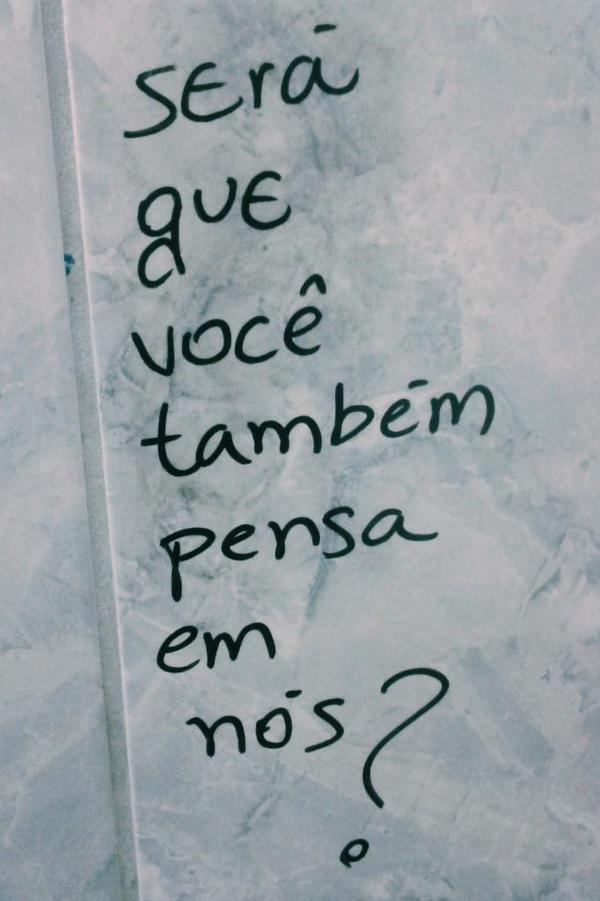 será
que
você
também
pensa
em
nós?